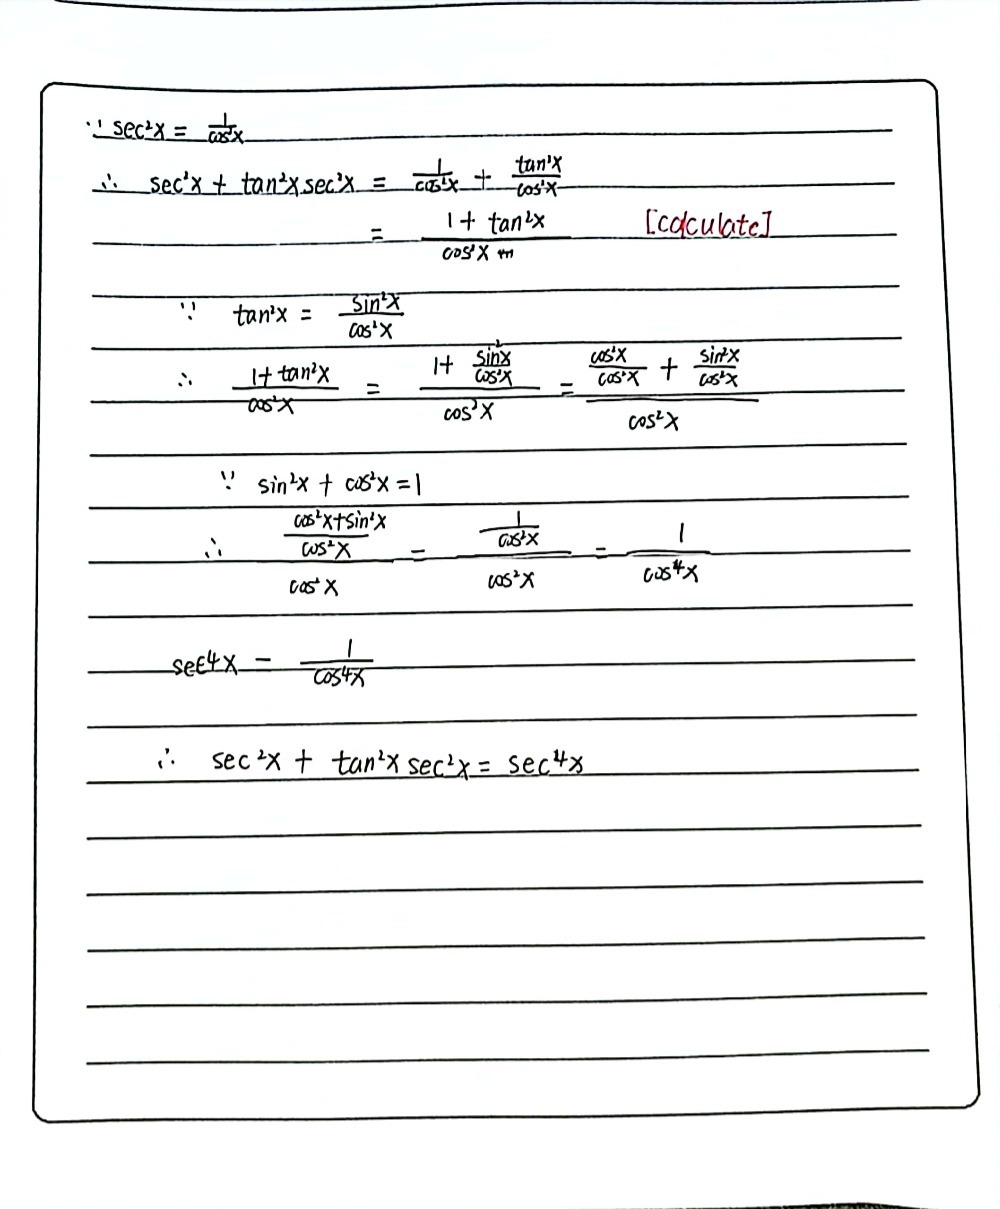 ∵ sec²x = 1/cos²x
∴ sec²x + tan²x sec²x = 1/cos²x + tan²x/cos²x
= (1 + tan²x)/cos²x [calculate]
∵ tan²x = sin²x/cos²x
∴ (1 + tan²x)/cos²x = (1 + sin²x/cos²x)/cos²x = (cos²x/cos²x + sin²x/cos²x)/cos²x
∵ sin²x + cos²x = 1
∴ ((cos²x + sin²x)/cos²x)/cos²x = (1/cos²x)/cos²x = 1/cos⁴x
sec⁴x = 1/cos⁴x
∴ sec²x + tan²x sec²x = sec⁴x